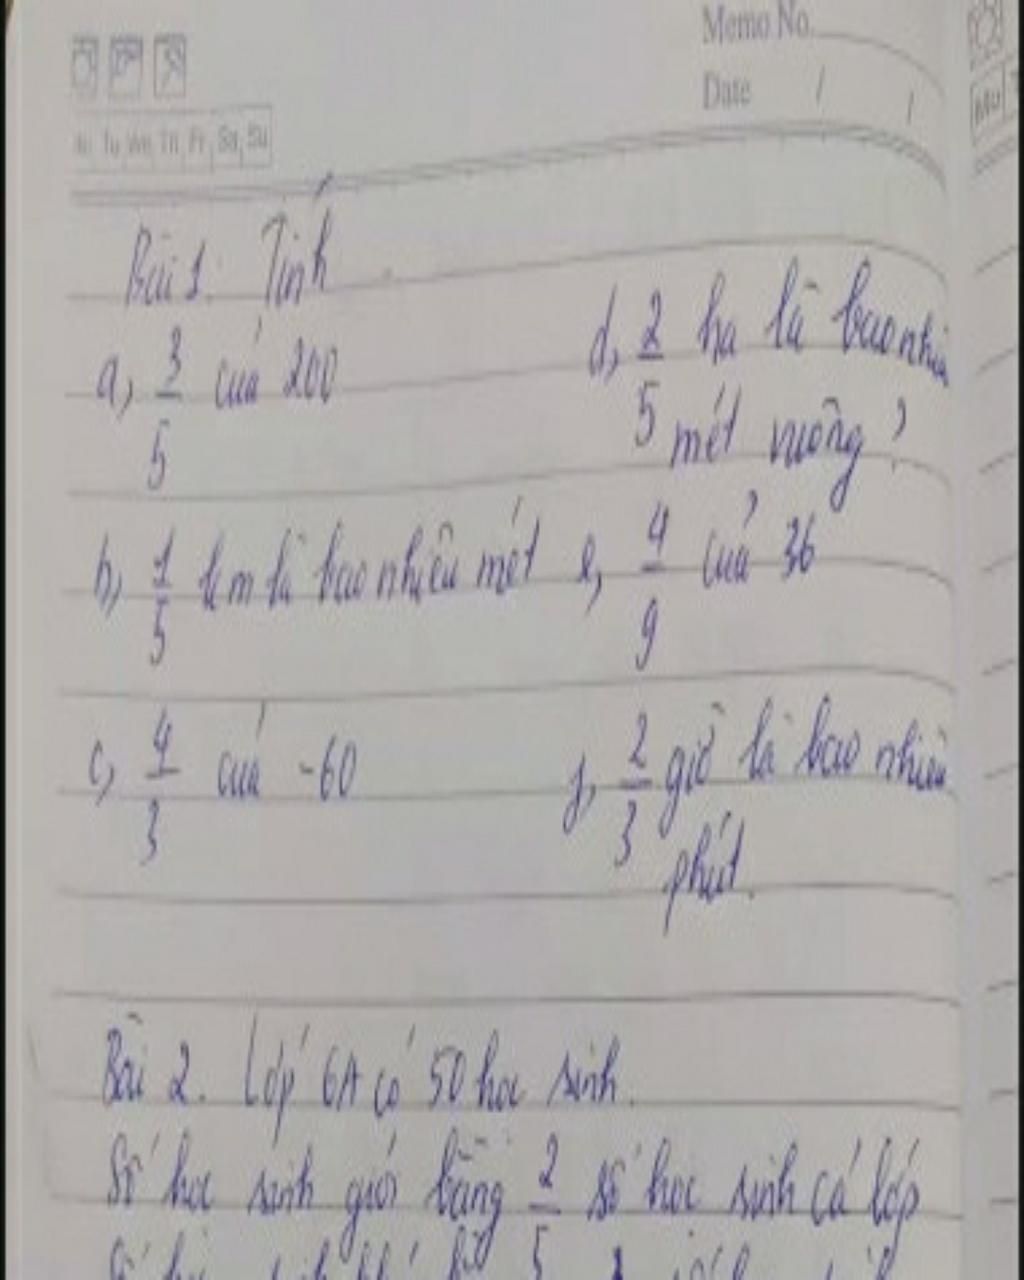 Memo No.
Date / /
Tu We Th Fr Sa Su
Bài 1. Tính
a, 3/5 của 200
d, 2/5 ha là bao nhiêu
mét vuông?
b, 1/5 km là bao nhiêu mét
e, 4/9 của 36
c, 4/3 của -60
f, 2/3 giờ là bao nhiêu
phút.
Bài 2. Lớp 6A có 50 học sinh.
Số học sinh giỏi bằng 2/5 số học sinh cả lớp